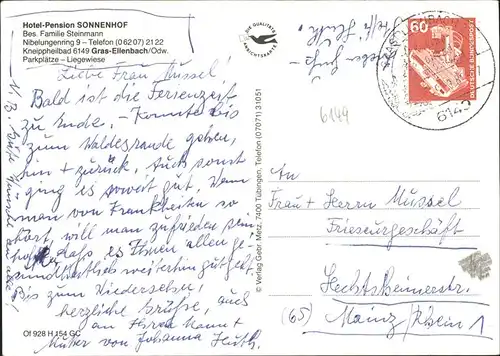 Hotel-Pension SONNENHOF
Bes. Familie Steinmann
Nibelungenring 9 – Telefon (0 62 07) 21 22
Kneippheilbad 6149 Gras-Ellenbach/Odw.
Parkplätze – Liegewiese
Liebe Frau Mussel!
Bald ist die Ferienzeit
zu Ende. – Konnte bis
zum Waldesrande gehen,
hin + zurück. Auch sonst
ging es soweit gut. Wenn
man von Krankheiten so
hört, will man zufrieden sein
daß es Ihnen allen ge-
weiterhin gut geht.
Bis zum Wiedersehen!
herzliche Grüße, auch
an Ihren Mann +
Mutter von Johanna Huth.
Of 928 H 154 GC
DIE QUALITÄTS
ANSICHTSKARTE
© Verlag Gebr. Metz, 7400 Tübingen, Telefon (07071) 31051
6149
60
DEUTSCHE BUNDESPOST
6149
An
Frau + Herrn Mussel
Friseurgeschäft
Hechtsheimerstr.
(65) Mainz/Rhein 1